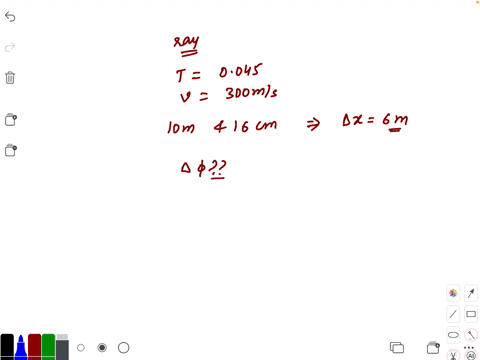 ray
T = 0.045
v = 300m/s
10m & 16 cm ⇒ Δx = 6m
Δϕ??